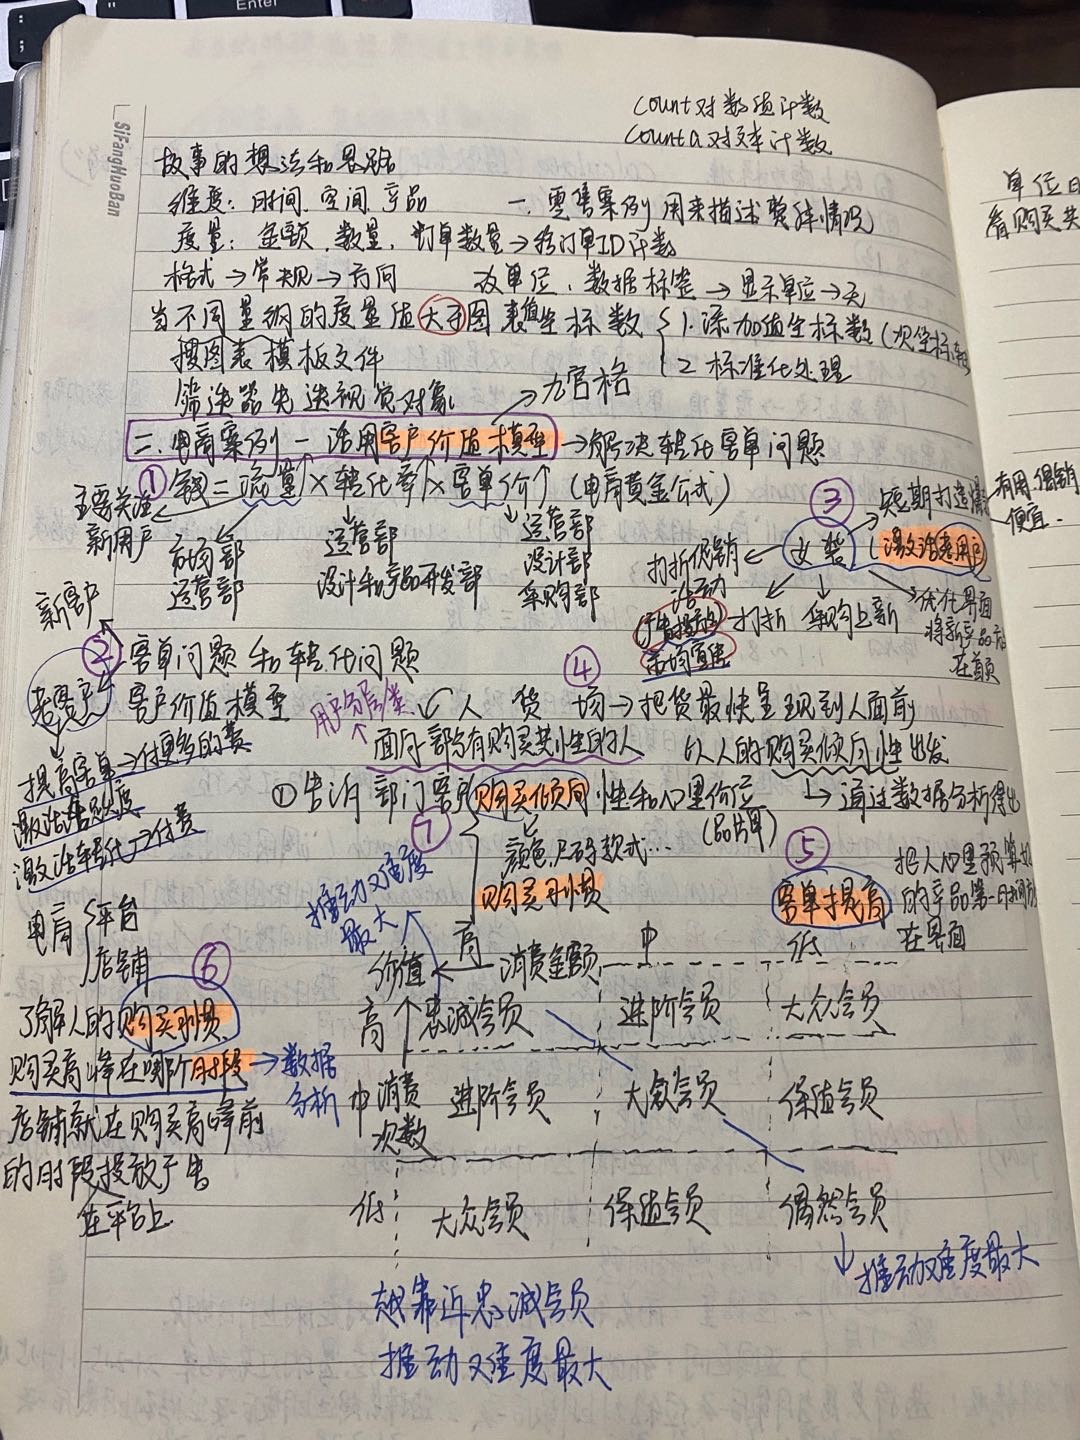 Enter
SiFangHuoBan
count对数值计数
counta对文本计数
故事的想法和思路
维度：时间、空间、产品
一、零售案例 用来描述整体情况
度量：金额、数量、订单数量→将订单ID计数
格式→常规→方向
改单位、数据标签→显示单位→无
当不同量纲的度量值大于图表值坐标数
1.添加值坐标数(次坐标轴)
2 标准化处理
搜图表模板文件
筛选器先选视觉对象
九宫格
二、电商案例—活用客户价值模型→解决转化客单问题
① 金钱=流量×转化率×客单价↑(电商黄金公式)
主要关注
新用户
市场部
运营部
运营部
设计和产品开发部
运营部
设计部
采购部
新客户
③
女装
短期打造爆
(激发活老用户)
打折促销
活动
(广告投放)
市场宣传
打折
采购上新
优化界面
将新产品放
在首页
② 客单问题和转化问题
老客户
客户价值模型
提高客单→付更多的费
激活活跃度
激活转化→付费
④
用户分层类
人 货 场→把货最快呈现到人面前
面向一部分有购买共性的人
以人的购买倾向性出发
通过数据分析得出
①告诉部门客户购买倾向性和心里价位
(品牌单)
⑦
颜色、尺码款式…
购买习惯
⑤
客单提高
把人心里预算如
的产品第一时间放
在界面
电商
平台
店铺
推动难度
最大
价值
高
消费金额
中
低
高
忠诚会员
进阶会员
大众会员
⑥
了解人的购买习惯
购买高峰在哪个时段→数据
分析
店铺就在购买高峰前
的时段投放广告
在平台上
中
消费
次数
进阶会员
大众会员
保值会员
低
大众会员
保值会员
偶然会员
推动难度最大
越靠近忠诚会员
推动难度最大
单位日
看购买关
有用、促销
便宜